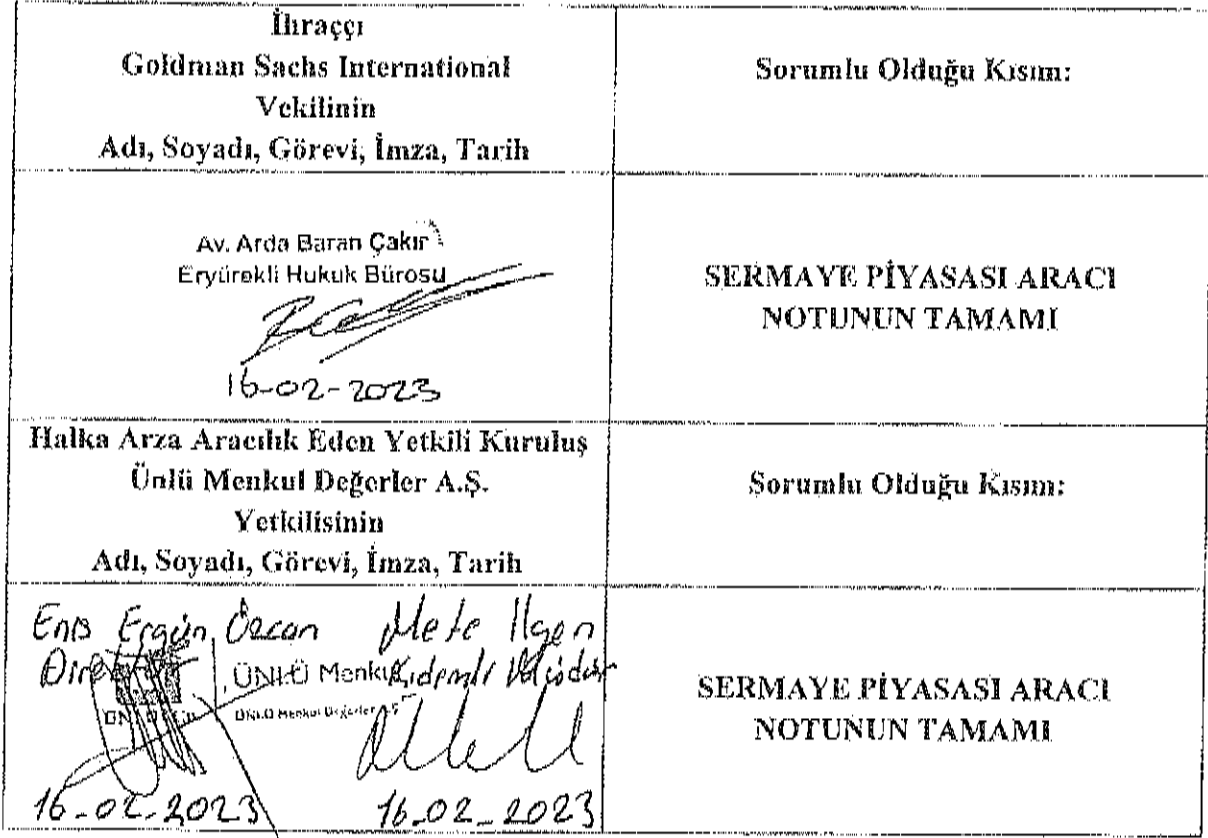 İhraççı
Goldman Sachs International
Vekilinin
Adı, Soyadı, Görevi, İmza, Tarih
Sorumlu Olduğu Kısım:
Av. Arda Baran Çakır
Eryürekli Hukuk Bürosu
16-02-2023
SERMAYE PİYASASI ARACI
NOTUNUN TAMAMI
Halka Arza Aracılık Eden Yetkili Kuruluş
Ünlü Menkul Değerler A.Ş.
Yetkilisinin
Adı, Soyadı, Görevi, İmza, Tarih
Sorumlu Olduğu Kısım:
Ergün Özcan Mete Ilgen
ÜNLÜ Kıdemli Müdür
ÜNLÜ Menkul Değerler A.Ş.
16-02-2023 16-02-2023
SERMAYE PİYASASI ARACI
NOTUNUN TAMAMI